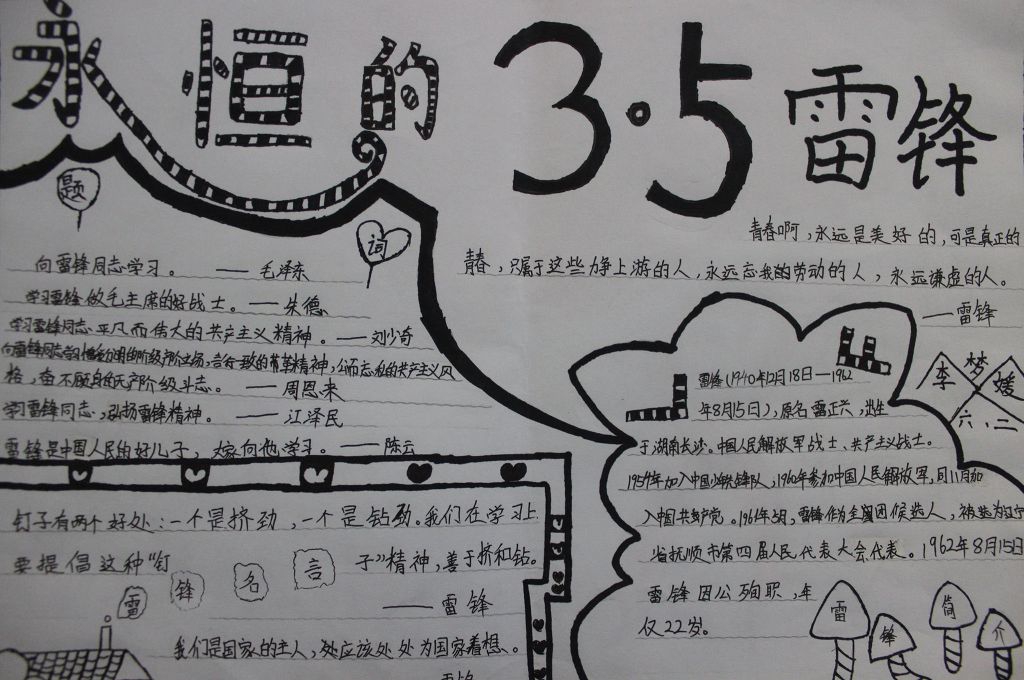 永恒的3·5雷锋
题词
向雷锋同志学习。——毛泽东
学习雷锋做毛主席的好战士。——朱德
学习雷锋同志平凡而伟大的共产主义精神。——刘少奇
向雷锋同志学习憎爱分明的阶级立场,言行一致的革命精神,公而忘私的共产主义风
格,奋不顾身的无产阶级斗志。——周恩来
学习雷锋同志,弘扬雷锋精神。——江泽民
雷锋是中国人民的好儿子,大家向他学习。——陈云
钉子有两个好处:一个是挤劲,一个是钻劲。我们在学习上
要提倡这种“钉子”精神,善于挤和钻。
——雷锋
雷锋名言
我们是国家的主人,处应该处处为国家着想。
雷锋
青春啊,永远是美好的,可是真正的
青春,只属于这些力争上游的人,永远忘我的劳动的人,永远谦虚的人。
——雷锋
李梦媛
六、二
雷锋(1940年12月18日—1962
年8月15日),原名雷正兴,出生
于湖南长沙。中国人民解放军战士、共产主义战士。
1954年加入中国少年先锋队,1960年参加中国人民解放军,同11月加
入中国共产党。1961年5月,雷锋作为团候选人,被选为辽宁
省抚顺市第四届人民代表大会代表。1962年8月15日
雷锋因公殉职,年
仅22岁。
雷锋简介